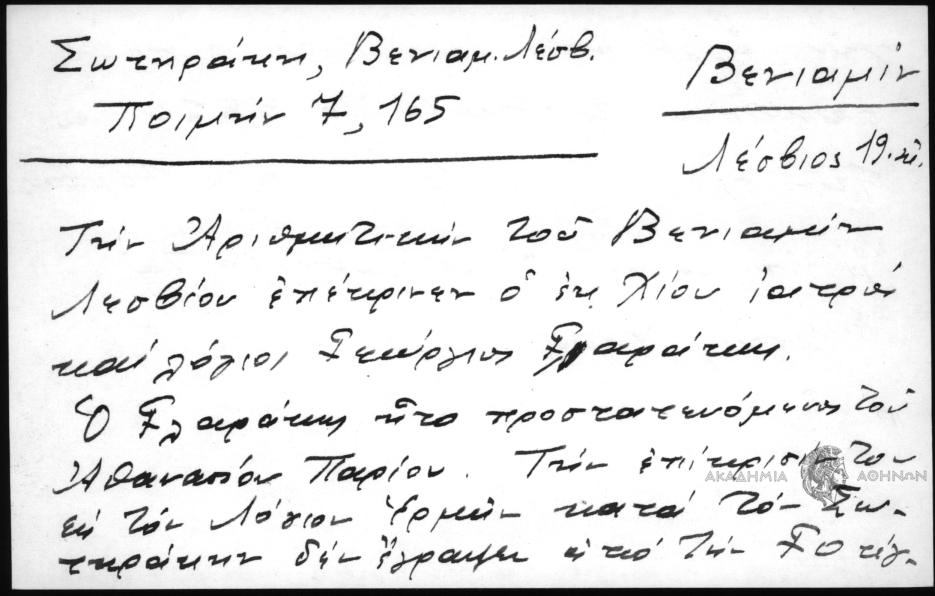 Σωτηράκη, Βενιαμ. Λέσβ.
Ποιμήν 7, 165
Βενιαμίν
Λέσβιος 19. αἰ.
Τήν Ἀριθμητικήν τοῦ Βενιαμίν
Λεσβίου ἐπέκρινεν ὁ ἐκ Χίου ἰατρός
καί λόγιος Γεώργιος Γλαράκης.
Ὁ Γλαράκης ἦτο προστατευόμενος τοῦ
Ἀθανασίου Παρίου. Τήν ἐπίκρισιν του
εἰς τόν Λόγιον Ἑρμῆν κατά τόν Σω-
τηράκην δέν ἔγραψε ἀπό τήν
ΑΚΑΔΗΜΙΑ ΑΘΗΝΩΝ